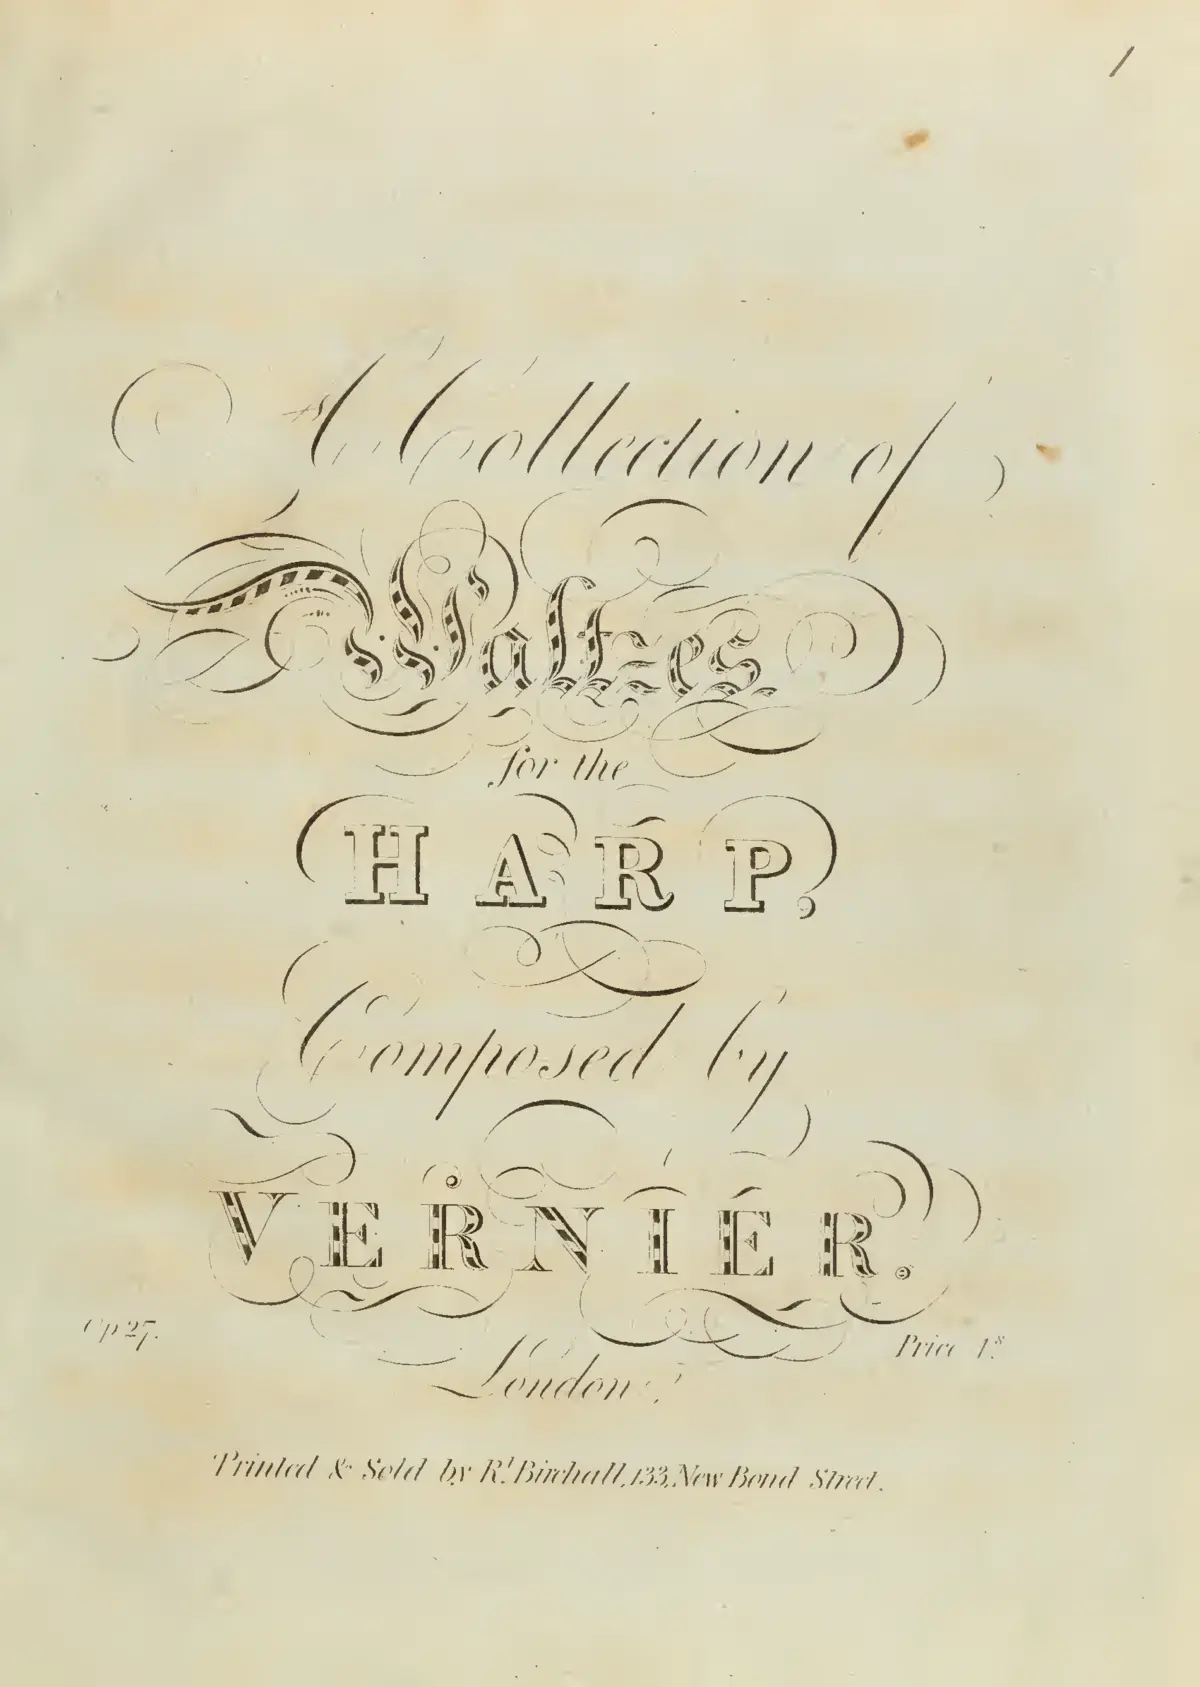 1
A Collection of
Waltzes
for the
HARP,
Composed by
VERNIER.
Op 27.
Price 1s.
London:
Printed & Sold by Rt. Birchall, 133, New Bond Street.